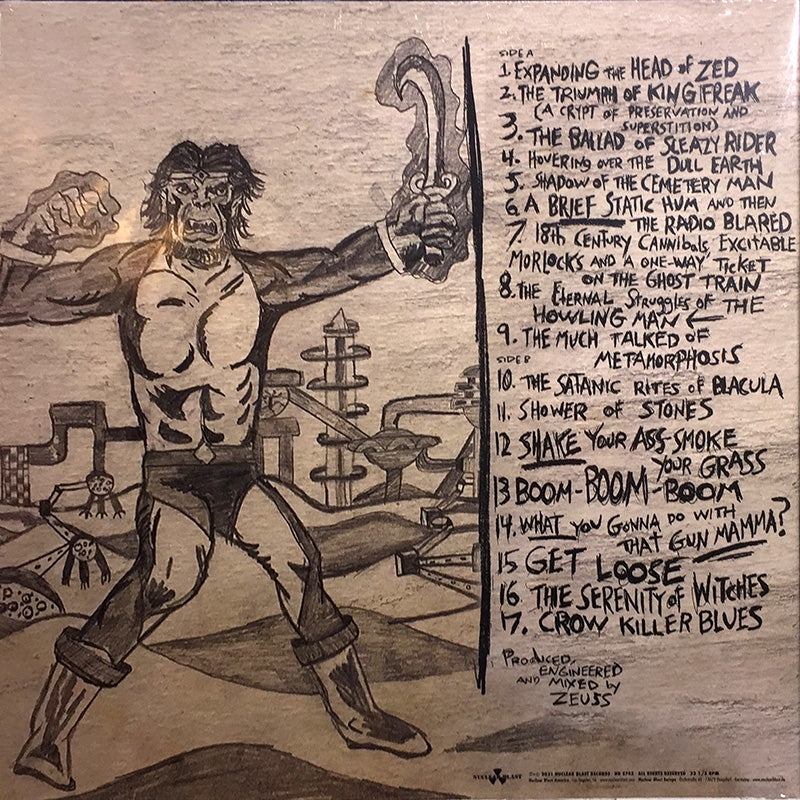 SIDE A
1. EXPANDING THE HEAD of ZED
2. THE TRIUMPH OF KING FREAK
(A CRYPT OF PRESERVATION AND
SUPERSTITION)
3. THE BALLAD OF SLEAZY RIDER
4. HOVERING OVER THE DULL EARTH
5. SHADOW OF THE CEMETERY MAN
6. A BRIEF STATIC HUM AND THEN
THE RADIO BLARED
7. 18th CENTURY CANNIBALS, EXCITABLE
MORLOCKS AND A ONE-WAY TICKET
ON THE GHOST TRAIN
8. THE ETERNAL STRUGGLES OF THE
HOWLING MAN ←
9. THE MUCH TALKED OF
METAMORPHOSIS
SIDE B
10. THE SATANIC RITES of BLACULA
11. SHOWER OF STONES
12 SHAKE YOUR ASS-SMOKE
YOUR GRASS
13 BOOM-BOOM-BOOM
14. WHAT YOU GONNA DO WITH
THAT GUN MAMMA?
15 GET LOOSE
16. THE SERENITY of WITCHES
17. CROW KILLER BLUES
PRODUCED,
ENGINEERED
AND MIXED by
ZEUSS
NUCLEAR BLAST
2021 NUCLEAR BLAST RECORDS ALL RIGHTS RESERVED 33 1/3 RPM